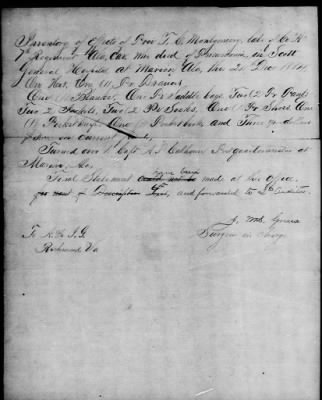 Inventory of Effects of Priv T. C. Montgomery late of Co K
7 Regiment Ala, Cav who died of Pneumonia, in Scott
General Hospital at Marion, Ala, the 21 Dec 1864
One Hat, One (1) Pr Drawers
One (1) Blanket, One Pr Saddle bags Two (2) Pr Pants
Two 2 Jackets Two (2) Prs Socks, One 1 Pr Shoes One
(1) Pocket Knife, One (1) Pocket book and
in current
Turned over to Capt A. P. Calhoun Post Quartermaster at
Marion, Ala.
Final Statement could not be made at this office
for want of Descriptive List, and forwarded to 2d Auditor
Surgeon in Charge
To A & I. G
Richmond Va